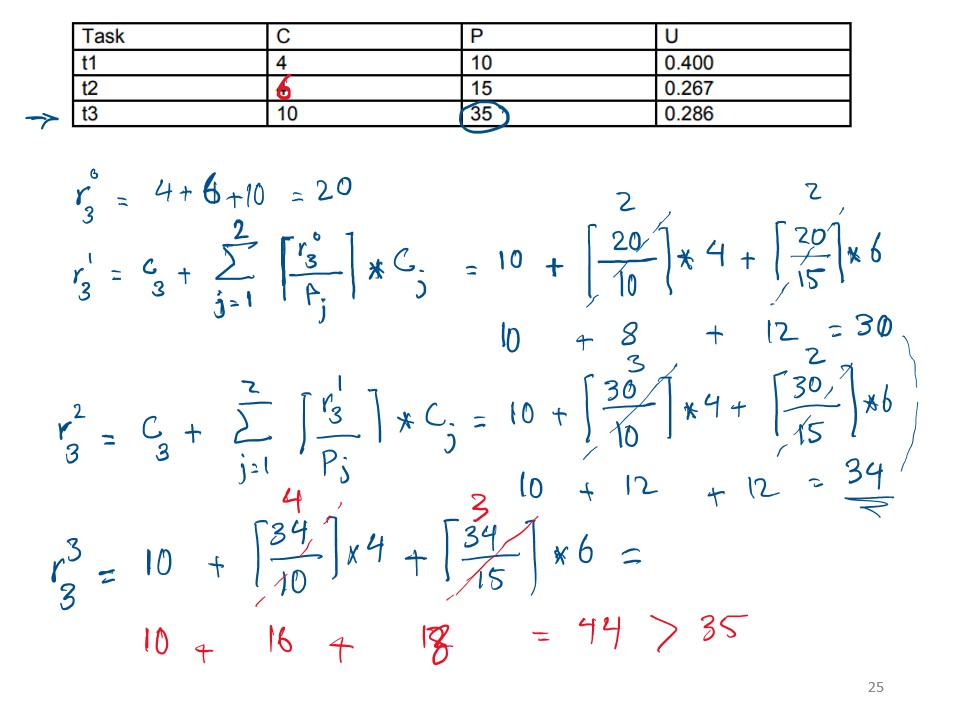 Task C P U
t1 4 10 0.400
t2 6 15 0.267
→ t3 10 35 0.286
r₃⁰ = 4 + 6 + 10 = 20
2 2
r₃¹ = C₃ + ∑_{j=1}^{2} ⌈r₃⁰/Pj⌉ * Cj = 10 + ⌈20/10⌉ * 4 + ⌈20/15⌉ * 6
10 + 8 + 12 = 30
3 2
r₃² = C₃ + ∑_{j=1}^{2} ⌈r₃¹/Pj⌉ * Cj = 10 + ⌈30/10⌉ * 4 + ⌈30/15⌉ * 6
10 + 12 + 12 = 34
4 3
r₃³ = 10 + ⌈34/10⌉ * 4 + ⌈34/15⌉ * 6 =
10 + 16 + 18 = 44 > 35
25